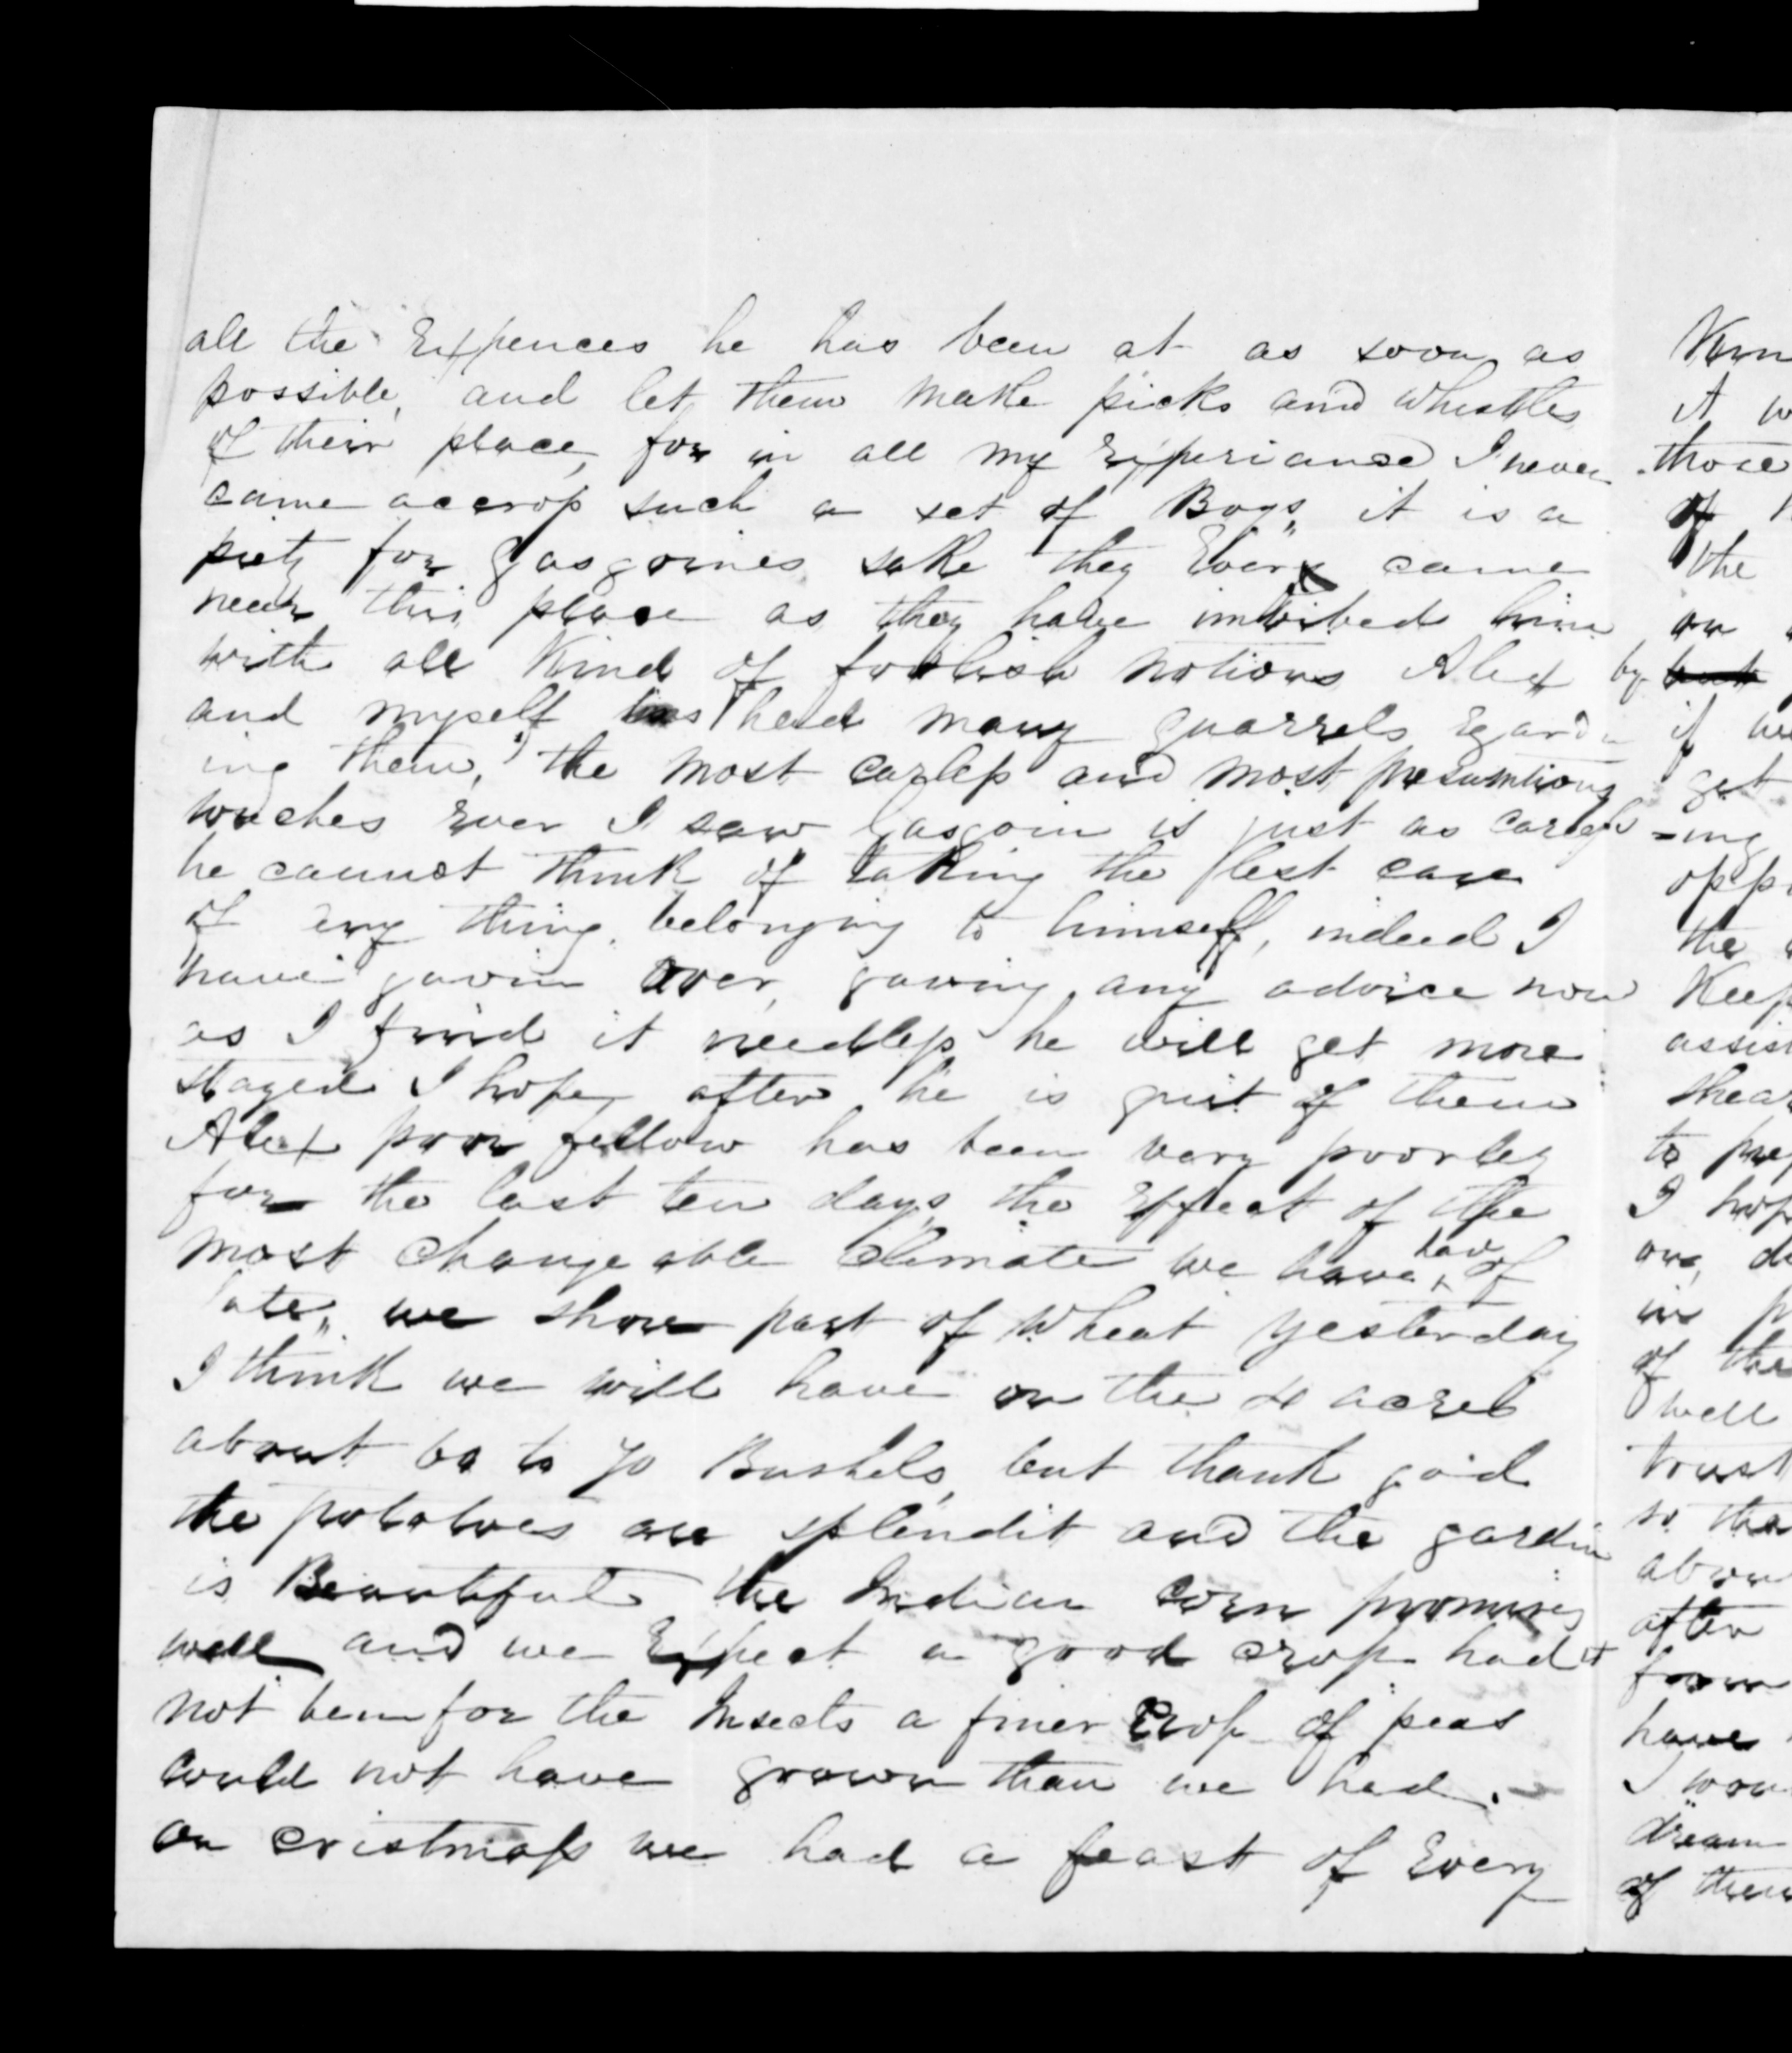 all the Expences he has been at as soon as
possible, and let them make picks and whistles
of their place, for in all my Experiance I never
came accross such a set of Boys, it is a
piety for Gasgoines sake they Ever came
near this place as they have imbibed him
with all Kind of foolish notions Alex
and myself has held many quarrels Egard
ing them, the most carless and most presumtious
Ever I saw Gasgoin is just as carless
he cannot think of taking the lest care
of eny thing belonging to himself, indeed I
have gavin over gaving any advice now
as I find it needless he will get more
I hope after he is quit of them
Alex poor fellow has been very poorley
for the last ten days the Effect of the
most changeable climate we have had of
late, we shore part of wheat yesterday
I think we will have on the acres
about 60 to 70 Bushels, but thank god
the potatoes are splendit and the gardin
is Beautiful the Indian corn promises
well and we Expect a good crop had it
not been for the Insects a finer Crop of peas
could not have grown than we had.
on cristmass we had a feast of Every
Kem
it w
those
of
the
on
by but
if we
get
=ing
opp
the
Keep
assis
shear
to pre
I hop
our d
in p
of the
well
trust
so tha
abou
after
from
have
I wou
dream
of them